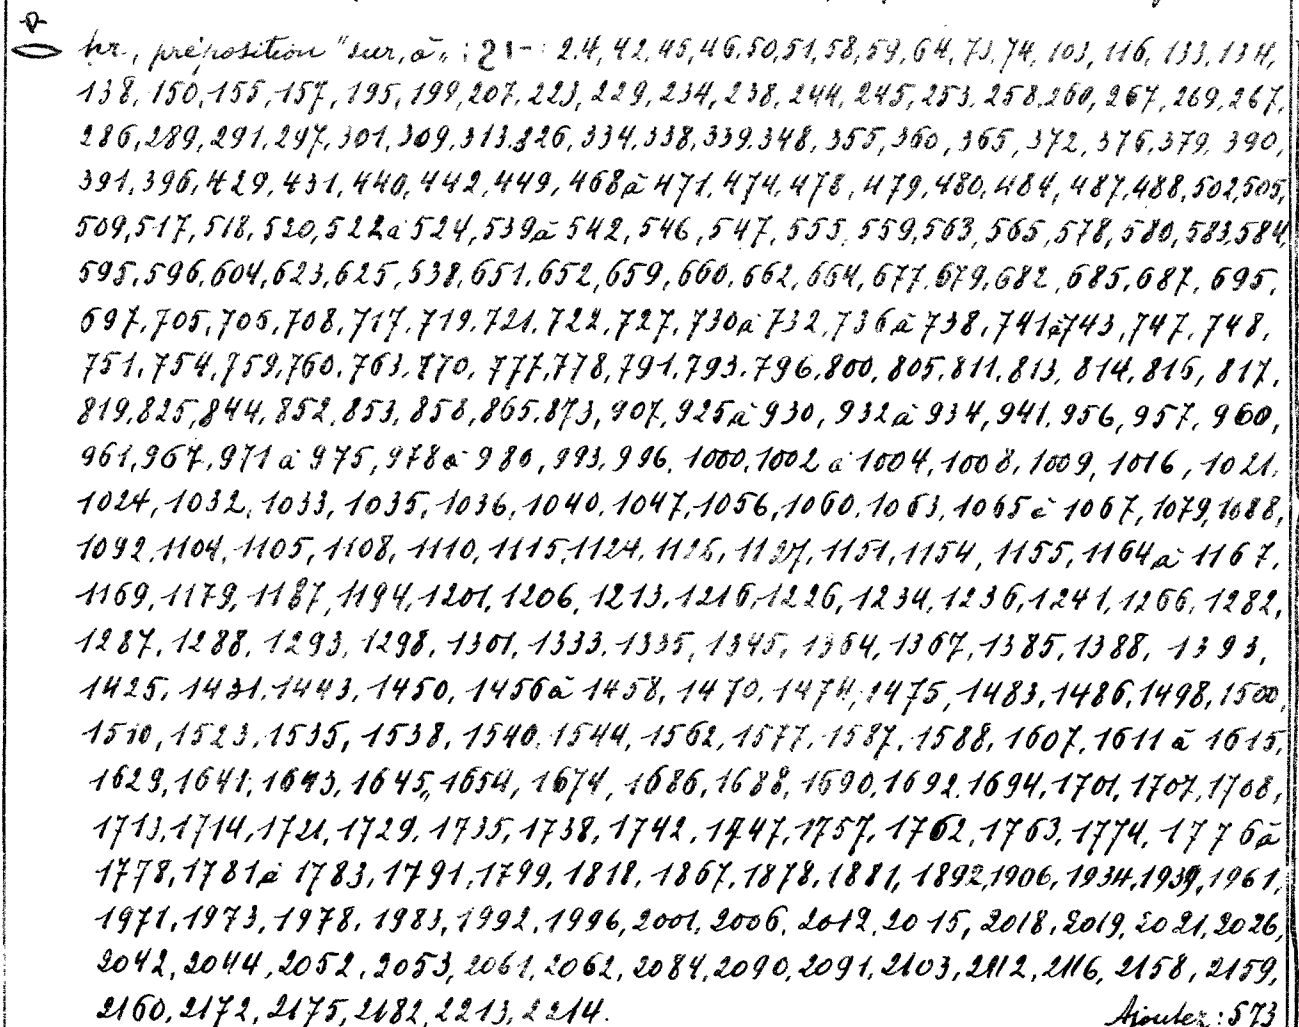 ḥr, préposition "sur, à" : 2,4, 42, 45, 46, 50, 51, 58, 59, 64, 73, 74, 103, 116, 133, 134,
138, 150, 155, 157, 195, 199, 207, 223, 229, 234, 238, 244, 245, 253, 258, 260, 267, 269, 267,
286, 289, 291, 297, 301, 309, 313, 326, 334, 338, 339, 348, 355, 360, 365, 372, 376, 379, 390,
391, 396, 429, 431, 440, 442, 449, 468 à 471, 474, 478, 479, 480, 484, 487, 488, 502, 505,
509, 517, 518, 520, 522 à 524, 539 à 542, 546, 547, 555, 559, 563, 565, 578, 580, 583, 584,
595, 596, 604, 623, 625, 638, 651, 652, 659, 660, 662, 664, 677, 679, 682, 685, 687, 695,
697, 705, 706, 708, 717, 719, 721, 722, 727, 730 à 732, 736 à 738, 741 à 743, 747, 748,
751, 754, 759, 760, 763, 770, 777, 778, 791, 793, 796, 800, 805, 811, 813, 814, 816, 817,
819, 825, 844, 852, 853, 858, 865, 873, 907, 925 à 930, 932 à 934, 941, 956, 957, 960,
961, 967, 971 à 975, 978 à 980, 993, 996, 1000, 1002 à 1004, 1008, 1009, 1016, 1021,
1024, 1032, 1033, 1035, 1036, 1040, 1047, 1056, 1060, 1063, 1065 à 1067, 1079, 1088,
1092, 1104, 1105, 1108, 1110, 1115, 1124, 1126, 1127, 1151, 1154, 1155, 1164 à 1167,
1169, 1179, 1187, 1194, 1201, 1206, 1213, 1216, 1226, 1234, 1236, 1241, 1266, 1282,
1287, 1288, 1293, 1298, 1301, 1333, 1335, 1345, 1364, 1367, 1385, 1388, 1393,
1425, 1431, 1443, 1450, 1456 à 1458, 1470, 1474, 1475, 1483, 1486, 1498, 1500,
1510, 1523, 1535, 1538, 1540, 1544, 1562, 1577, 1587, 1588, 1607, 1611 à 1615,
1629, 1641, 1643, 1645, 1654, 1674, 1686, 1688, 1690, 1692, 1694, 1701, 1707, 1708,
1713, 1714, 1721, 1729, 1735, 1738, 1742, 1747, 1757, 1762, 1763, 1774, 1776 à
1778, 1781 à 1783, 1791, 1799, 1818, 1867, 1878, 1881, 1892, 1906, 1934, 1939, 1961,
1971, 1973, 1978, 1983, 1992, 1996, 2001, 2006, 2012, 2015, 2018, 2019, 2021, 2026,
2042, 2044, 2052, 2053, 2061, 2062, 2084, 2090, 2091, 2103, 2112, 2116, 2158, 2159,
2160, 2172, 2175, 2182, 2213, 2214. Ajouter : 573